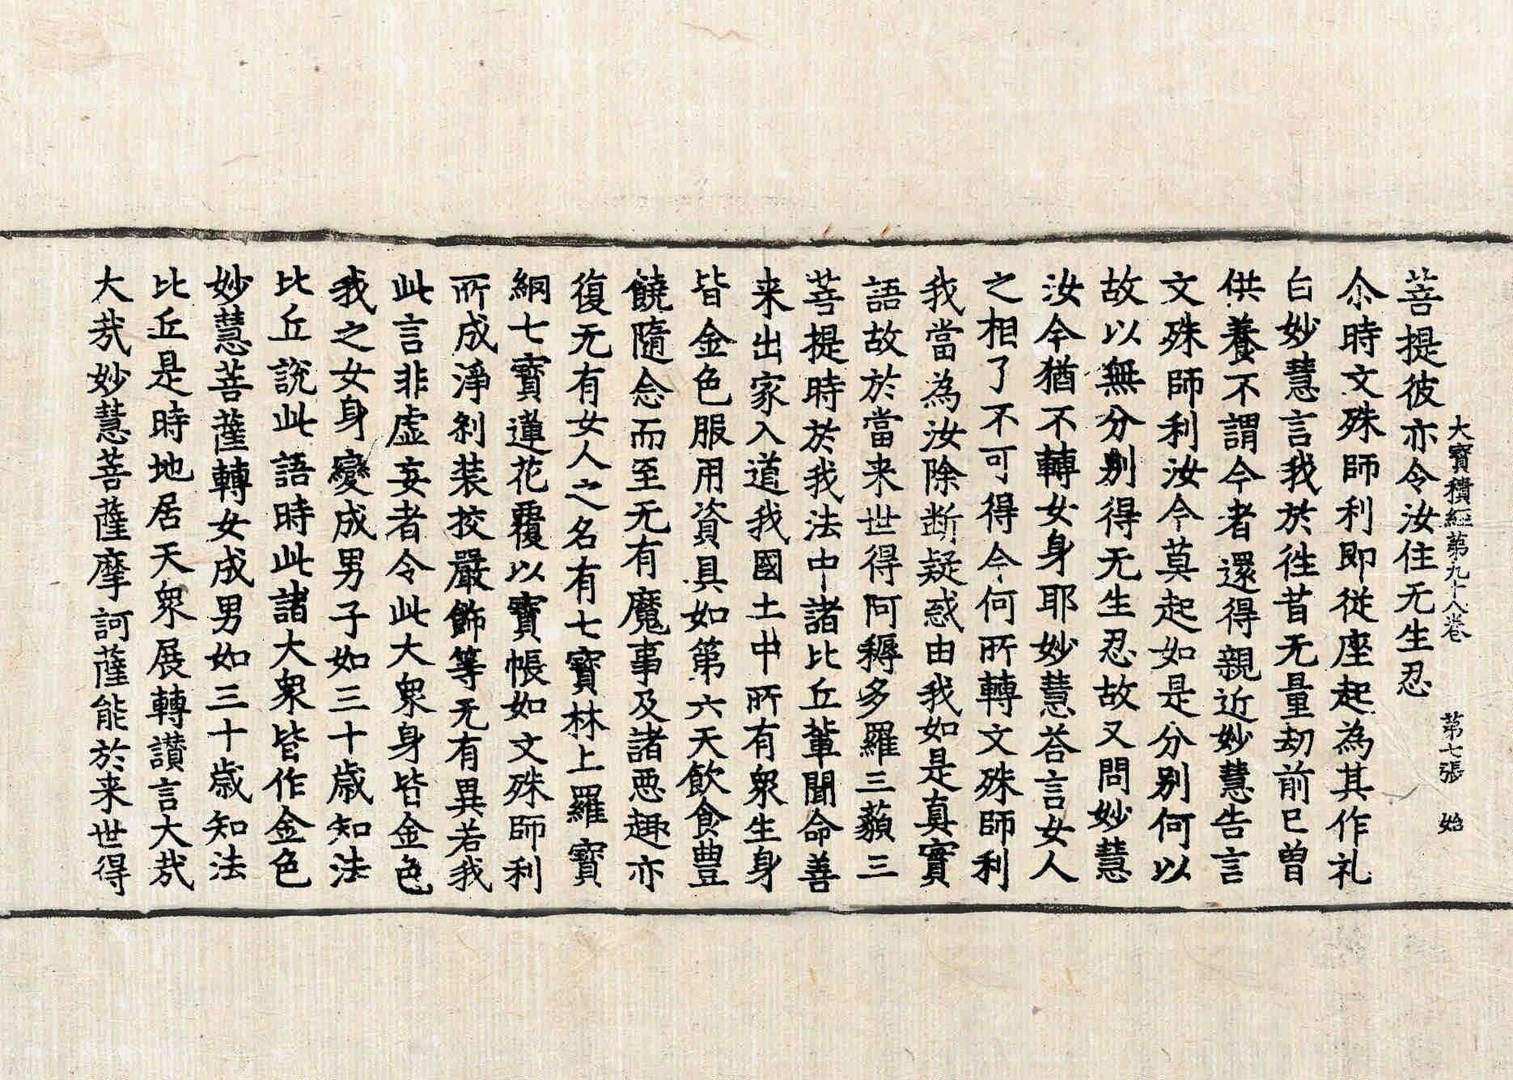 大寶積經第九十八卷　第七張　始
菩提彼亦令汝住无生忍
尒時文殊師利即從座起為其作礼
白妙慧言我於徃昔无量劫前已曾
供養不謂今者還得親近妙慧告言
文殊師利汝今莫起如是分别何以
故以無分别得无生忍故又問妙慧
汝今猶不轉女身耶妙慧荅言女人
之相了不可得今何所轉文殊師利
我當為汝除断疑惑由我如是真實
語故於當来世得阿耨多羅三藐三
菩提時於我法中諸比丘軰聞命善
来出家入道我國土中所有衆生身
皆金色服用資具如第六天飲食豊
饒隨念而至无有魔事及諸悪趣亦
復无有女人之名有七寶林上羅寶
網七寶蓮花覆以寶帳如文殊師利
所成淨刹装挍嚴飾等无有異若我
此言非虚妄者令此大衆身皆金色
我之女身變成男子如三十歳知法
比丘說此語時此諸大衆皆作金色
妙慧菩薩轉女成男如三十歳知法
比丘是時地居天衆展轉讃言大㢤
大㢤妙慧菩薩摩訶薩能於来世得